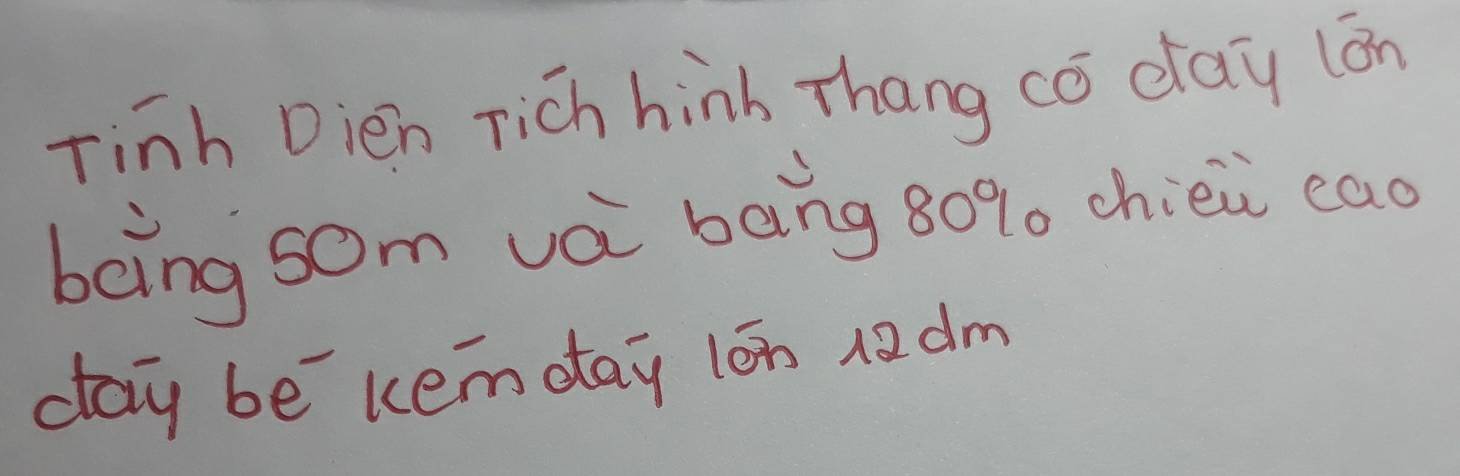 Tính Diện Tích hình Thang có đáy lớn
bằng 50m và bằng 80% chiều cao
đáy bé kém đáy lớn 12dm